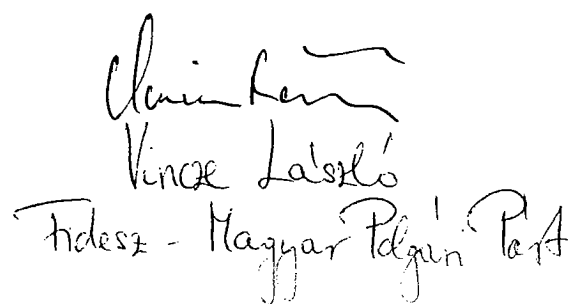 Vincze László
Fidesz - Magyar Polgári Párt